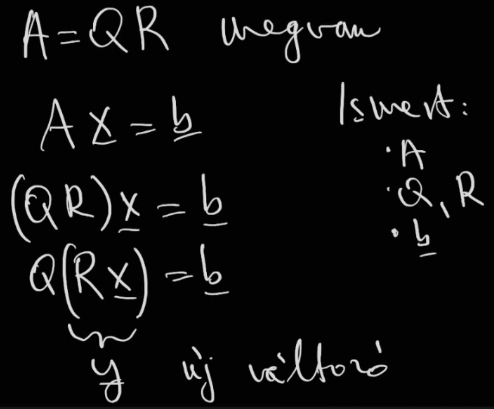 A = QR megvan
A x = b
(QR) x = b
Q(Rx) = b
y új változó
Ismert:
· A
· Q, R
· b